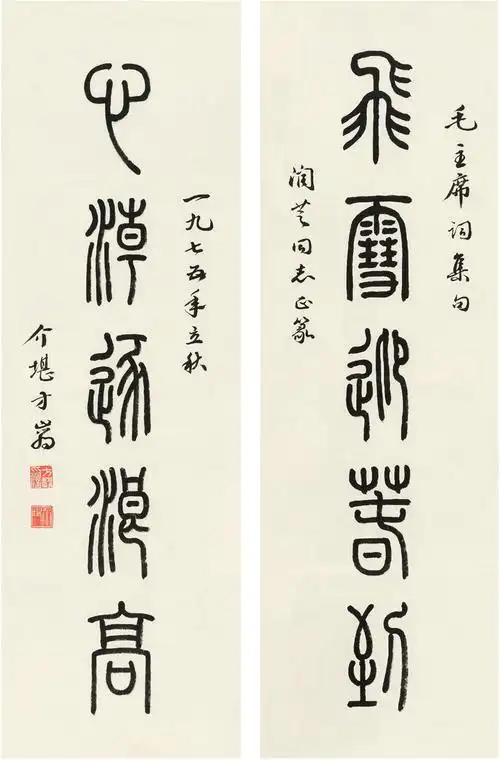 毛主席词集句
飛雪迎春到
润芝同志正篆
一九七五年立秋
心潮逐浪高
介堪方